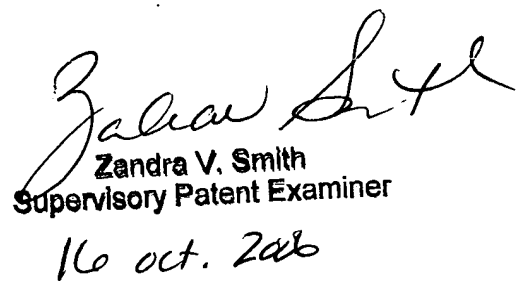 Zandra Smith
Zandra V. Smith
Supervisory Patent Examiner
16 oct. 2006